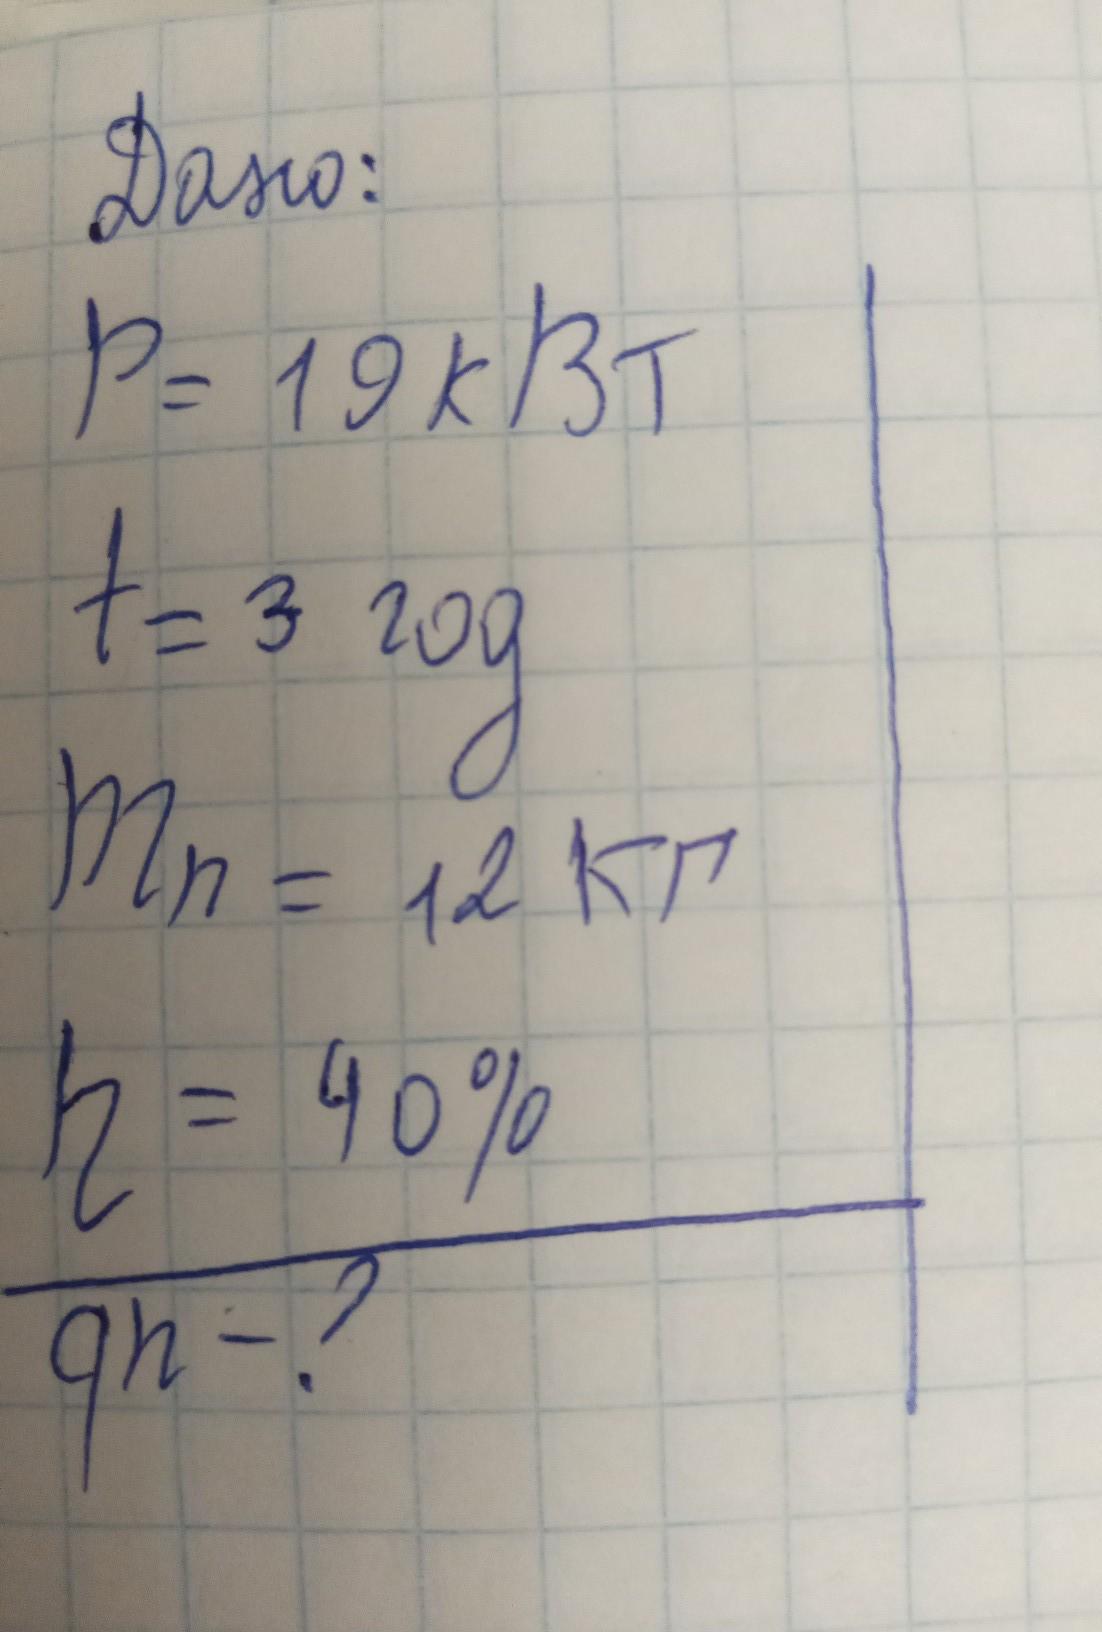 Дано:
P = 19 кВт
t = 3 год
mп = 12 кг
η = 40%
qп - ?